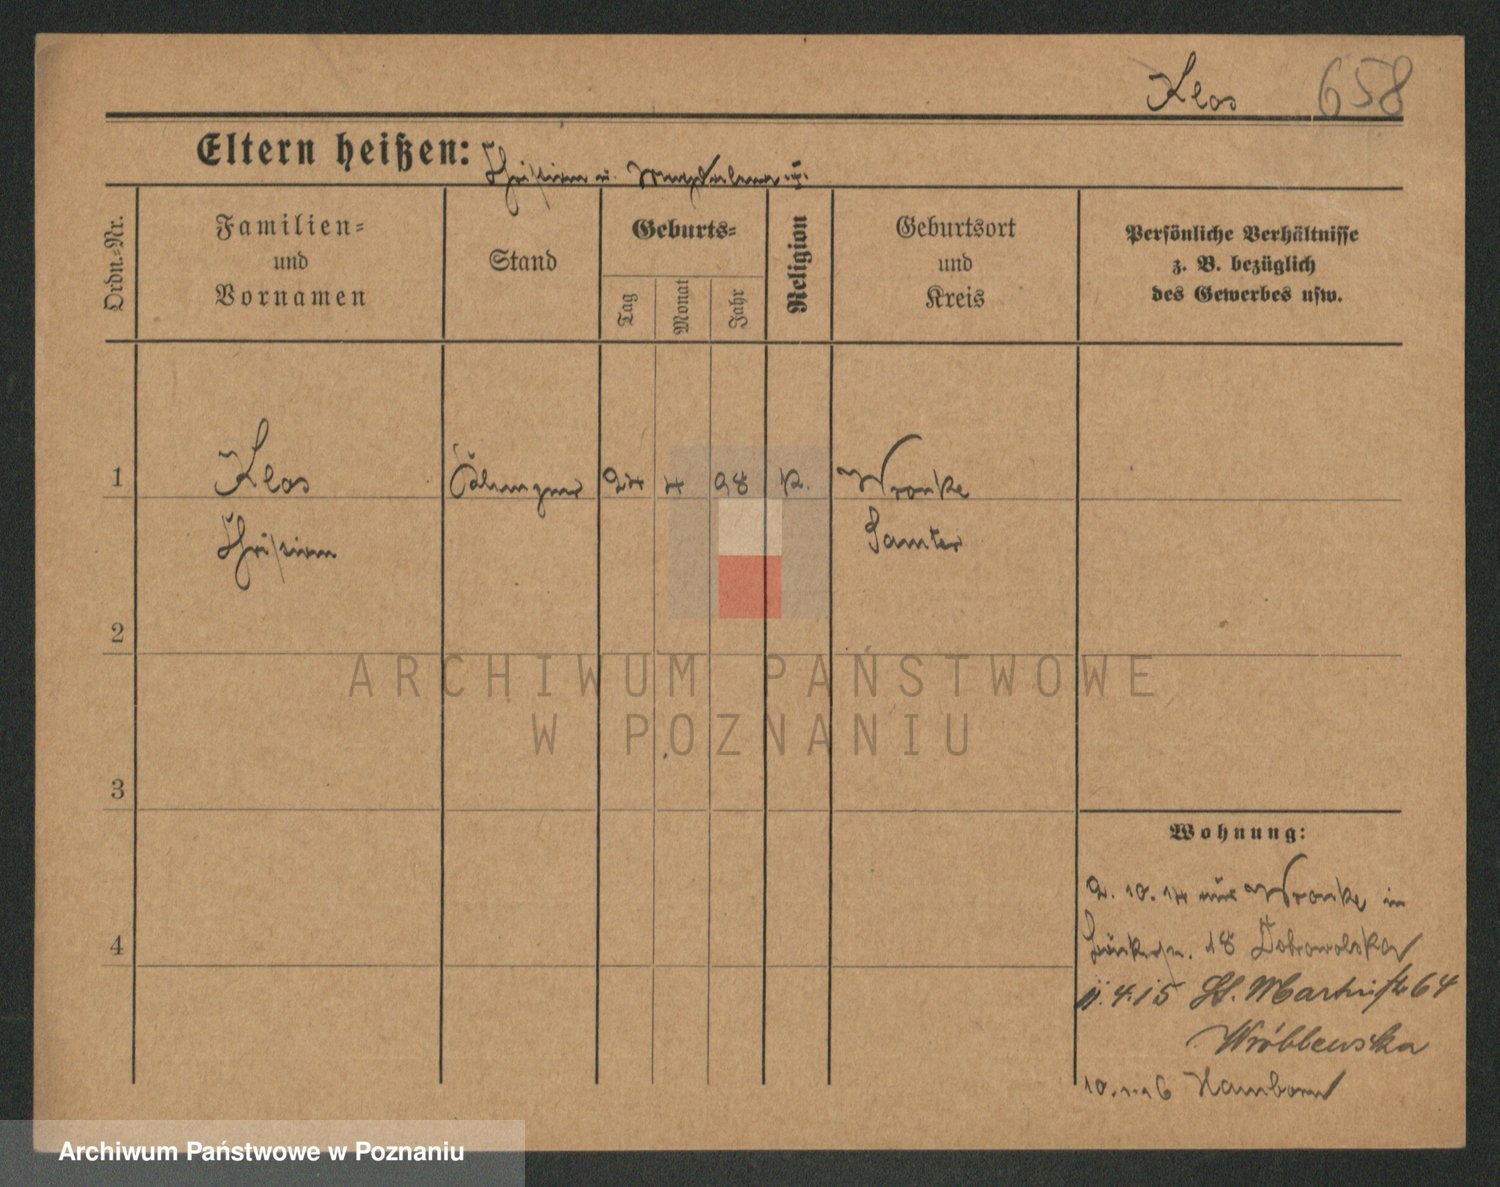 Klos 658
Eltern heißen:
u.
Ordn.=Nr.
Familien=
und
Vornamen
Stand
Geburts=
Tag
Monat
Jahr
Religion
Geburtsort
und
Kreis
Persönliche Verhältnisse
z. B. bezüglich
des Gewerbes usw.
1
Klos 24 4 98 k. Wronke
Samter
2
ARCHIWUM PAŃSTWOWE
W POZNANIU
3
Wohnung:
2. 10. 14 aus Wronke in
18 Dobrowolska
4
4.15 St. Martinstr 64
Wróblewska
10. Hamborn
Archiwum Państwowe w Poznaniu